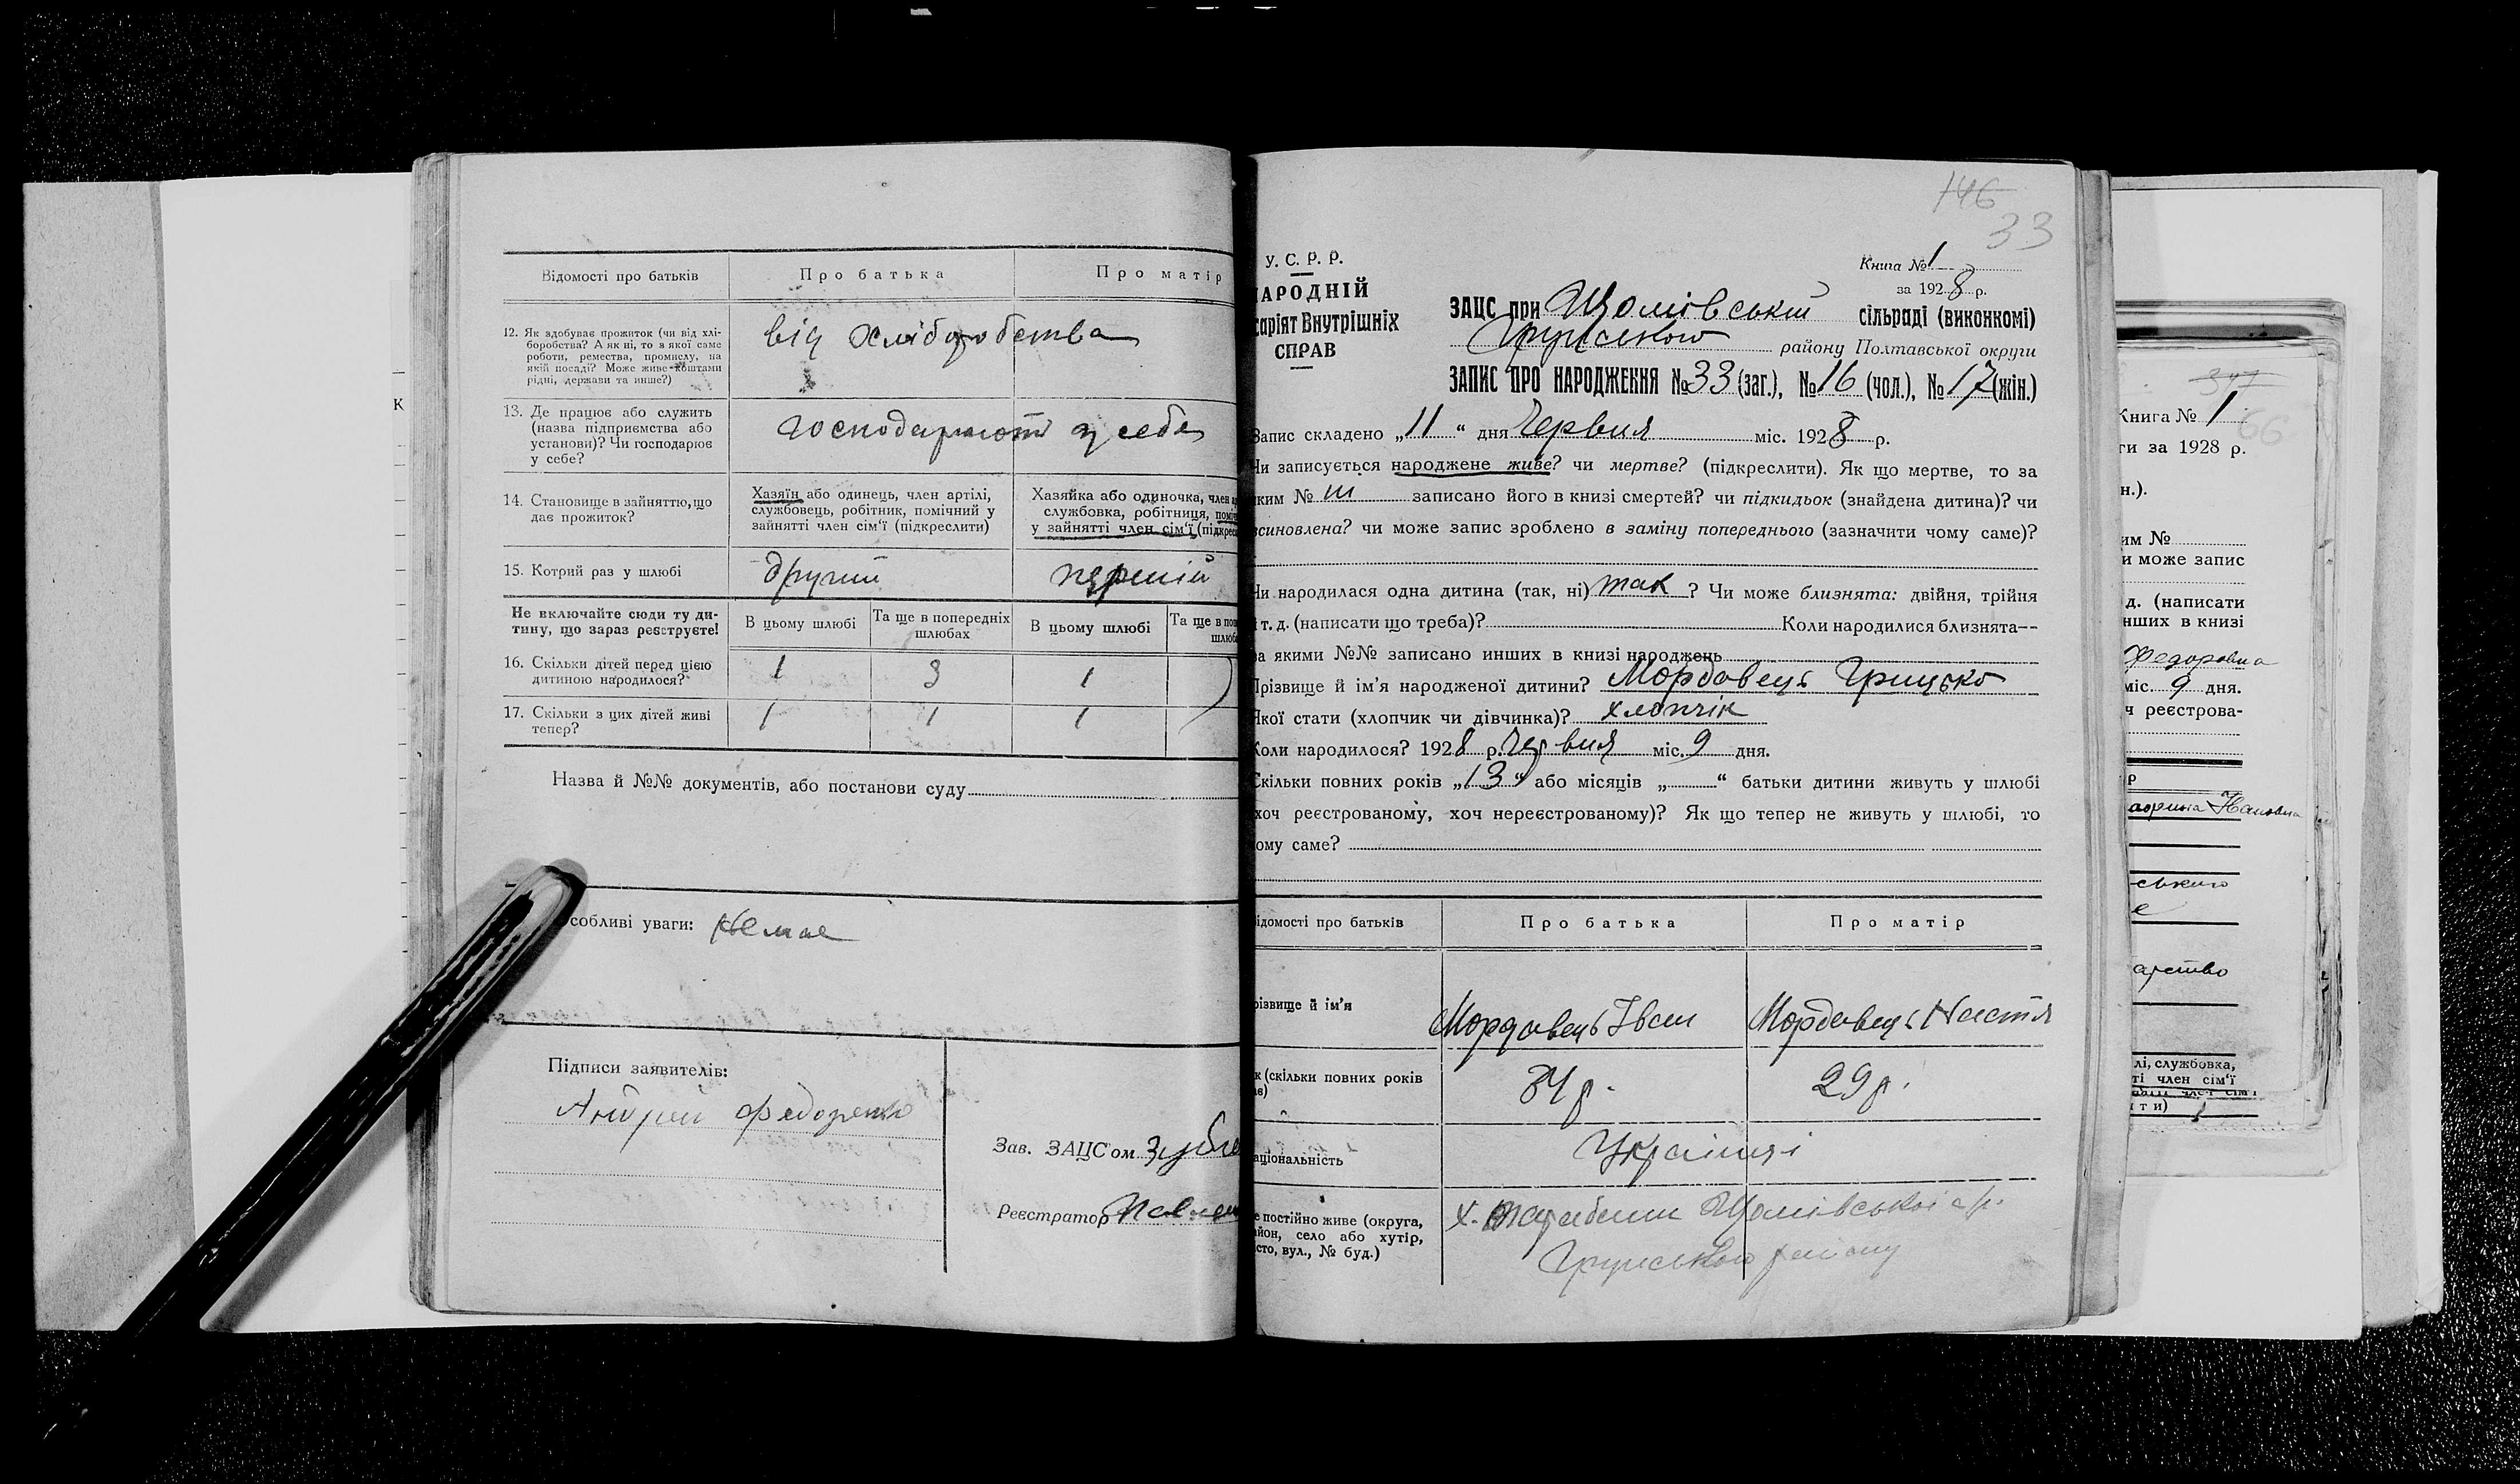 Відомості про батьків
Про батька
Про матір
12. Як здобуває прожиток (чи від хлі-
боробства? А як ні, то з якої саме
роботи, ремества, промислу, на
якій посаді? Може живе коштами
рідні, держави та инше?)
від хліборобства
13. Де працює або служить
(назва підприємства або
установи)? Чи господарює
у себе?
господарюють у себе
14. Становище в зайняттю, що
дає прожиток?
Хазяїн або одинець, член артілі,
службовець, робітник, помічний у
зайнятті член сім'ї (підкреслити)
Хазяйка або одиночка, член
службовка, робітниця,
у зайнятті член сім'ї
15. Котрий раз у шлюбі
другий
перший
Не включайте сюди ту ди-
тину, що зараз реєструєте!
В цьому шлюбі
Та ще в попередніх
шлюбах
В цьому шлюбі
Та ще в
16. Скільки дітей перед цією
дитиною народилося?
1
3
1
17. Скільки з цих дітей живі
тепер?
1
1
1
Назва й №№ документів, або постанови суду
собливі уваги: немає
Підписи заявителів:
Андрей Федоренко
Зав. ЗАЦС'ом
Реєстратор
146
33
У. С. Р. Р.
АРОДНІЙ
аріят Внутрішніх
СПРАВ
Книга № 1
за 1928 р.
ЗАЦС при сільраді (виконкомі)
Грунського району Полтавської округи
ЗАПИС ПРО НАРОДЖЕННЯ № 33 (заг.), № 16 (чол.), № 17 (жін.)
Запис складено „11“ дня Червня міс. 1928 р.
Чи записується народжене живе? чи мертве? (підкреслити). Як що мертве, то за
яким № записано його в книзі смертей? чи підкидьок (знайдена дитина)? чи
всиновлена? чи може запис зроблено в заміну попереднього (зазначити чому саме)?
Чи народилася одна дитина (так, ні) так? Чи може близнята: двійня, трійня
і т. д. (написати що треба)? Коли народилися близнята—
за якими №№ записано инших в книзі народжень
Прізвище й ім'я народженої дитини? Мордовець Грицько
Якої стати (хлопчик чи дівчинка)? хлопчік
Коли народилося? 1928 р. червня міс. 9 дня.
Скільки повних років „13“ або місяців „ “ батьки дитини живуть у шлюбі
хоч реєстрованому, хоч нереєстрованому)? Як що тепер не живуть у шлюбі, то
ому саме?
ідомості про батьків
Про батька
Про матір
різвище й ім'я
Мордовець Іван
Мордовець Настя
к (скільки повних років
34 р.
29 р.
аціональність
Українці
е постійно живе (округа,
йон, село або хутір,
сто, вул., № буд.)
Грунського району
347
Книга № 1
66
ги за 1928 р.
н.).
им №
и може запис
д. (написати
нших в книзі
Федоровна
міс. 9 дня.
ч реєстрова-
Ивановна
ського
лі, службовка,
ті член сім'ї